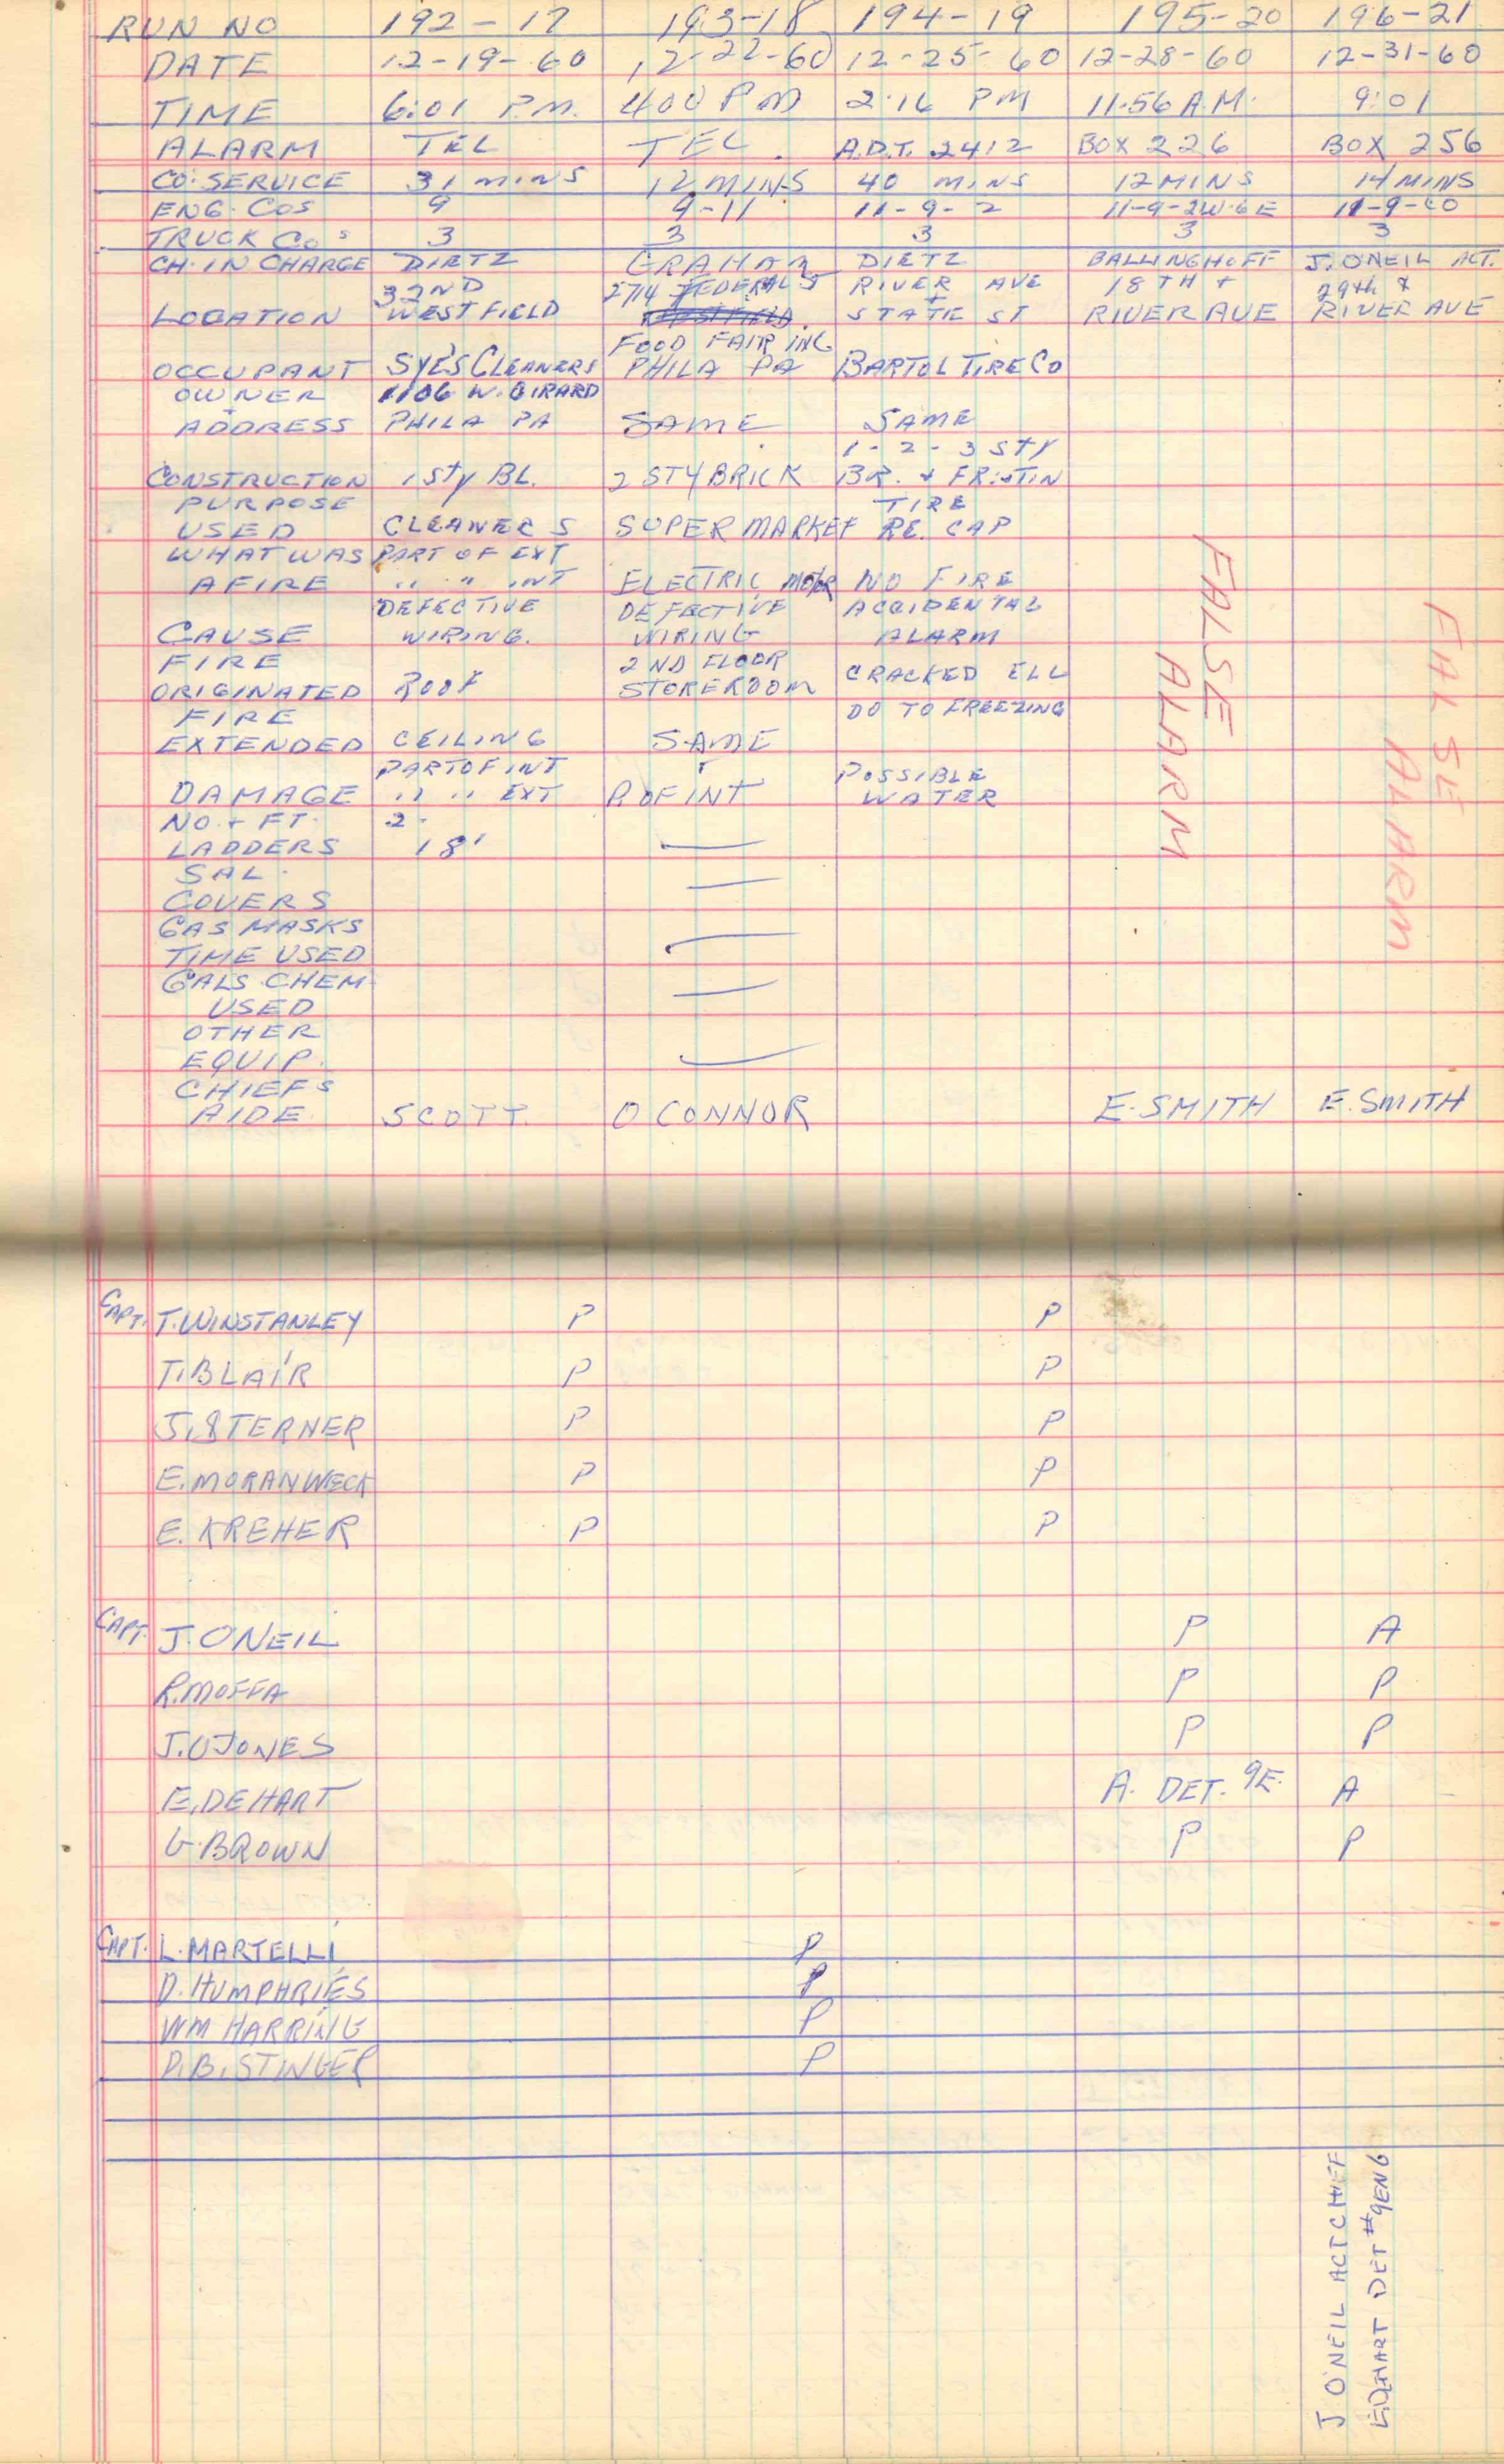 RUN NO 192-17 193-18 194-19 195-20 196-21
DATE 12-19-60 12-22-60 12-25-60 12-28-60 12-31-60
TIME 6:01 P.M. 400 PM 2:16 PM 11:56 A.M. 9:01
ALARM TEL TEL. A.D.T. 2412 BOX 226 BOX 256
CO. SERVICE 31 MINS 12 MINS 40 MINS 12 MINS 14 MINS
ENG. COS 9 9-11 11-9-2 11-9-2W-6E 11-9-60
TRUCK COS 3 3 3 3 3
CH. IN CHARGE DIETZ GRAHAM DIETZ BALLINGHOFF J. ONEIL ACT.
32ND 2714 FEDERAL ST RIVER AVE 18TH + 29th &
LOCATION WESTFIELD WESTFIELD. + STATE ST RIVER AVE RIVER AVE
FOOD FAIR INC
OCCUPANT SYE'S CLEANERS PHILA PA BARTOL TIRE CO
OWNER 1106 W. GIRARD
+ ADDRESS PHILA PA SAME SAME
1-2-3 STY
CONSTRUCTION 1 STY BL. 2 STY BRICK BR. + FR. + TIN
PURPOSE TIRE
USED CLEANERS SUPER MARKET RE. CAP
WHAT WAS PART OF EXT
AFIRE " " INT ELECTRIC MOTOR NO FIRE
DEFECTIVE DEFECTIVE ACCIDENTAL
CAUSE WIRING. WIRING ALARM
FIRE 2ND FLOOR
ORIGINATED ROOF STOREROOM CRACKED ELL
FIRE DO TO FREEZING
EXTENDED CEILING SAME
PART OF INT POSSIBLE
DAMAGE " " EXT P. OF INT WATER
NO. + FT. 2-
LADDERS 18' —
SAL.
COVERS —
GAS MASKS
TIME USED —
GALS CHEM
USED —
OTHER
EQUIP. —
CHIEFS
AIDE SCOTT. O CONNOR E. SMITH E. SMITH
FALSE
ALARM
FALSE
ALARM
CAPT. T. WINSTANLEY P P
T. BLAIR P P
J. STERNER P P
E. MORANWECK P P
E. KREHER P P
CAPT. J. O'NEIL P A
R. MOFFA P P
J. O JONES P P
E. DEHART A. DET. 9E. A
G. BROWN P P
CAPT. L. MARTELLI P
D. HUMPHRIES P
WM HARRING P
D. B. STINGER P
J O'NEIL ACT CHIEF
E. DEHART DET #9 ENG